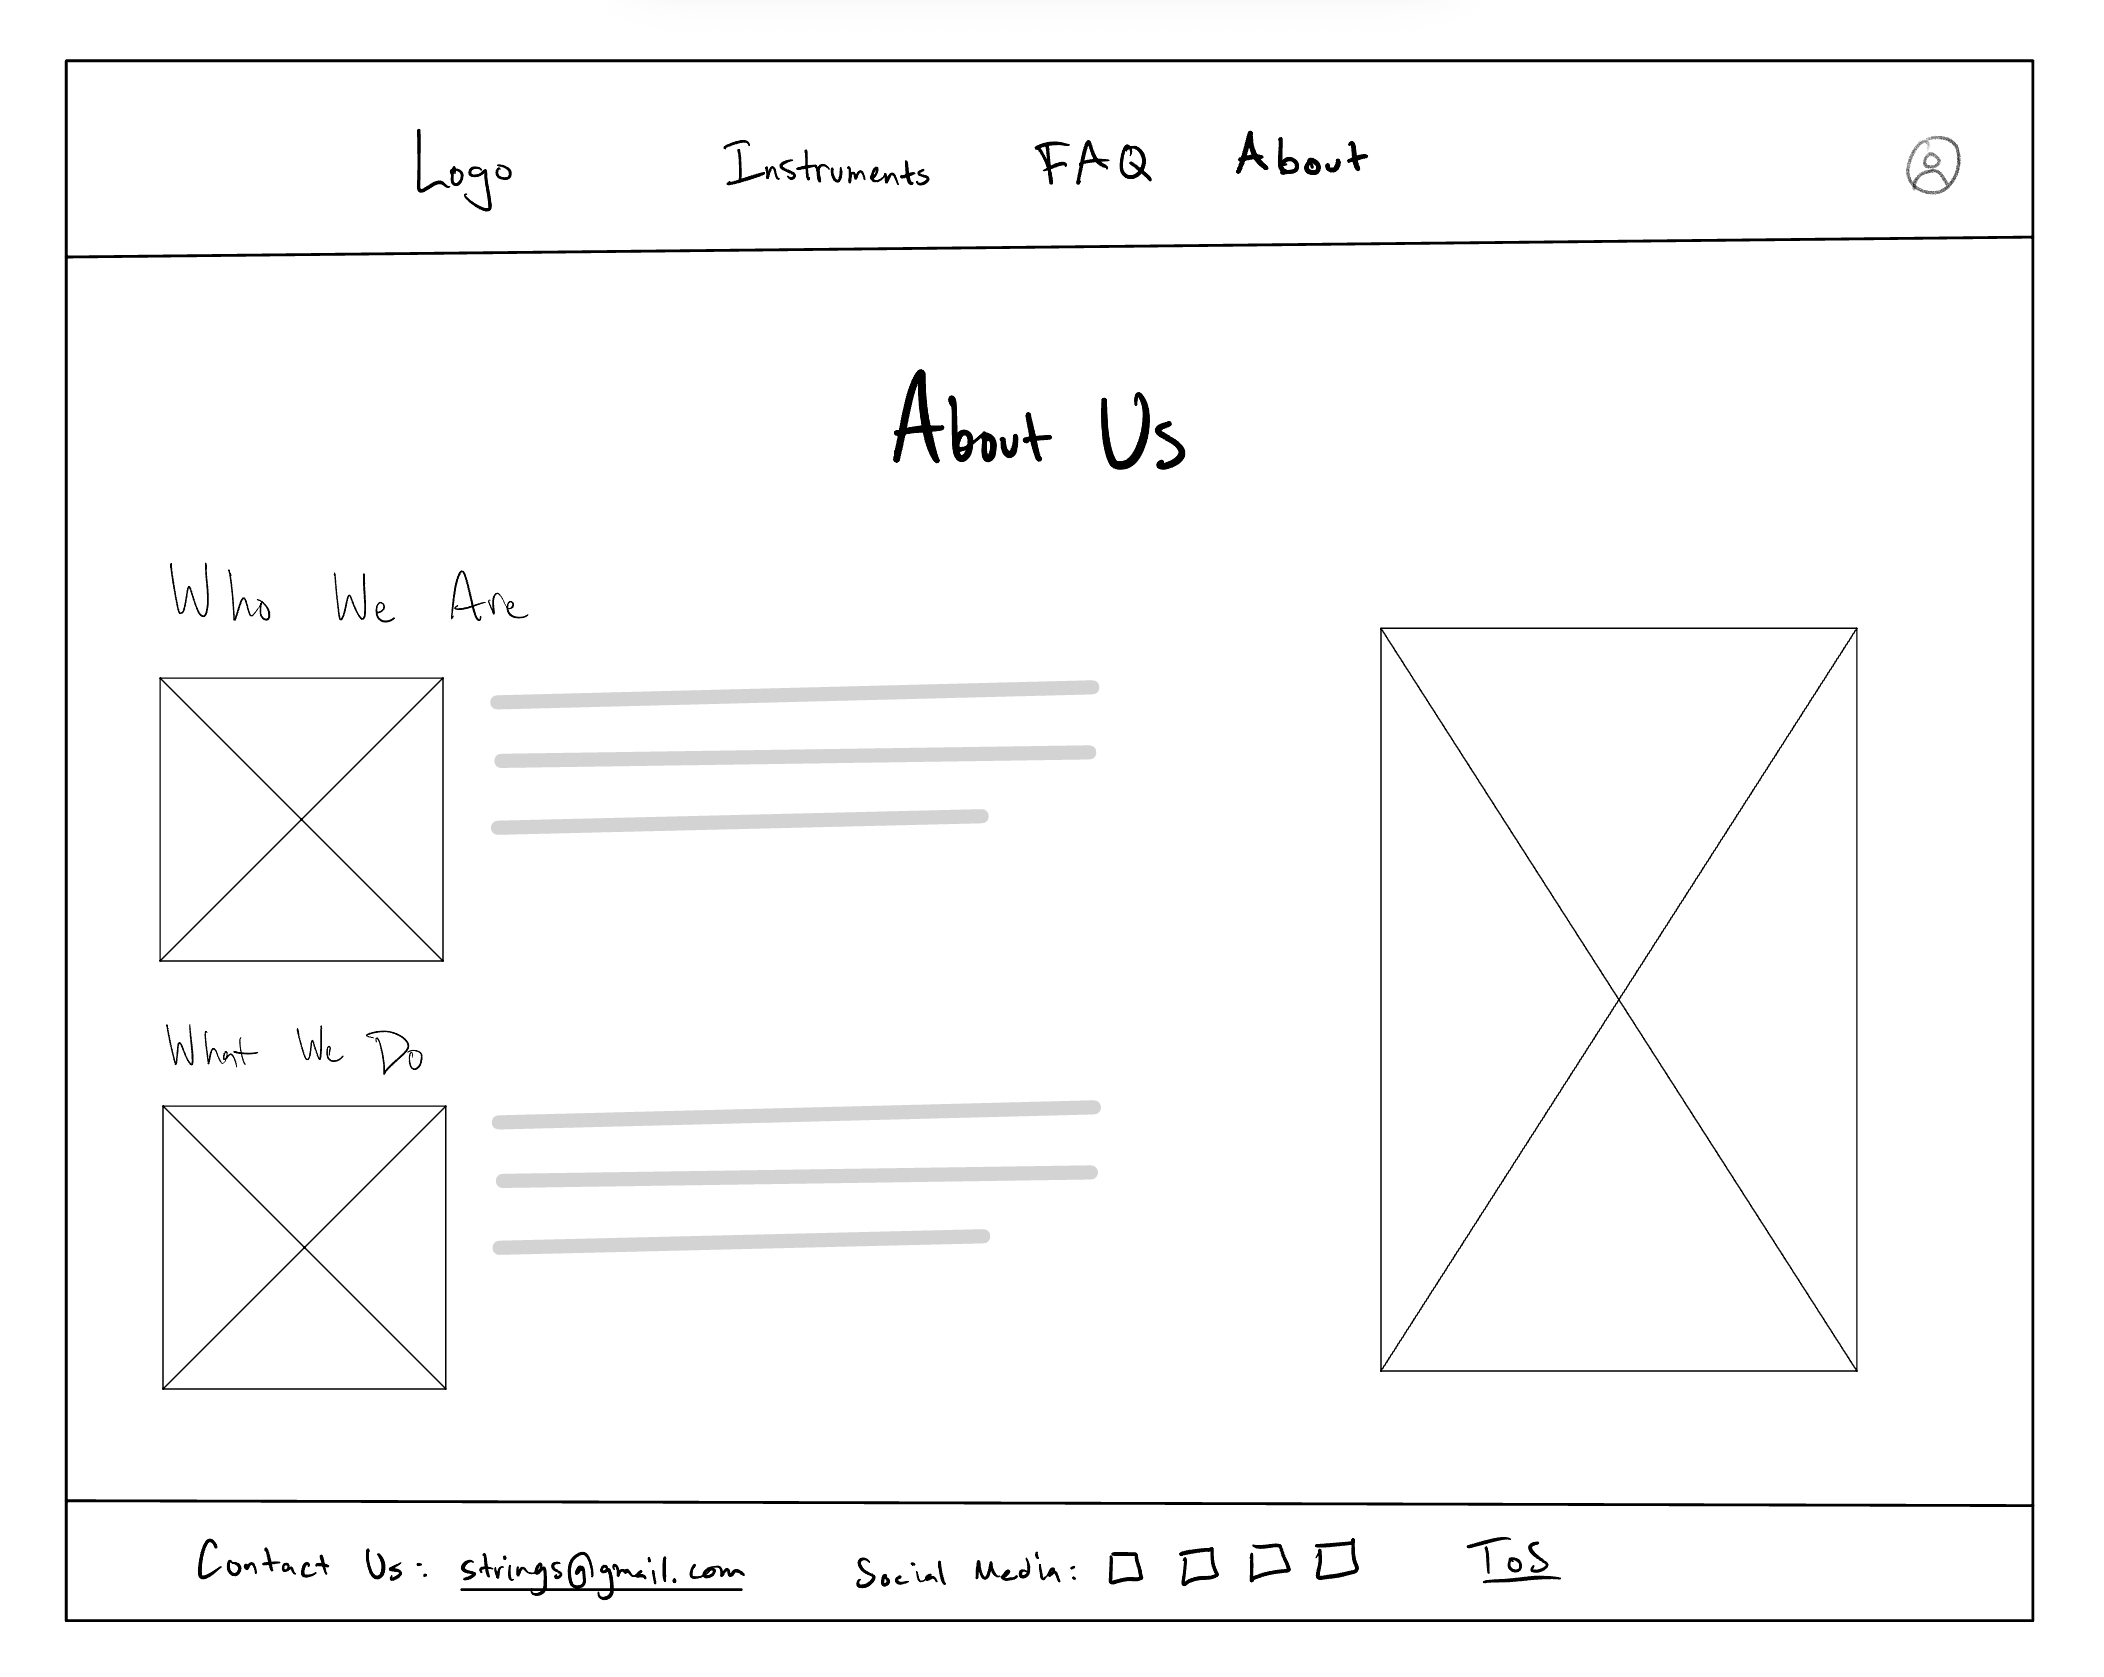 Logo Instruments FAQ About
About Us
Who We Are
What We Do
Contact Us: strings@gmail.com Social Media: ToS